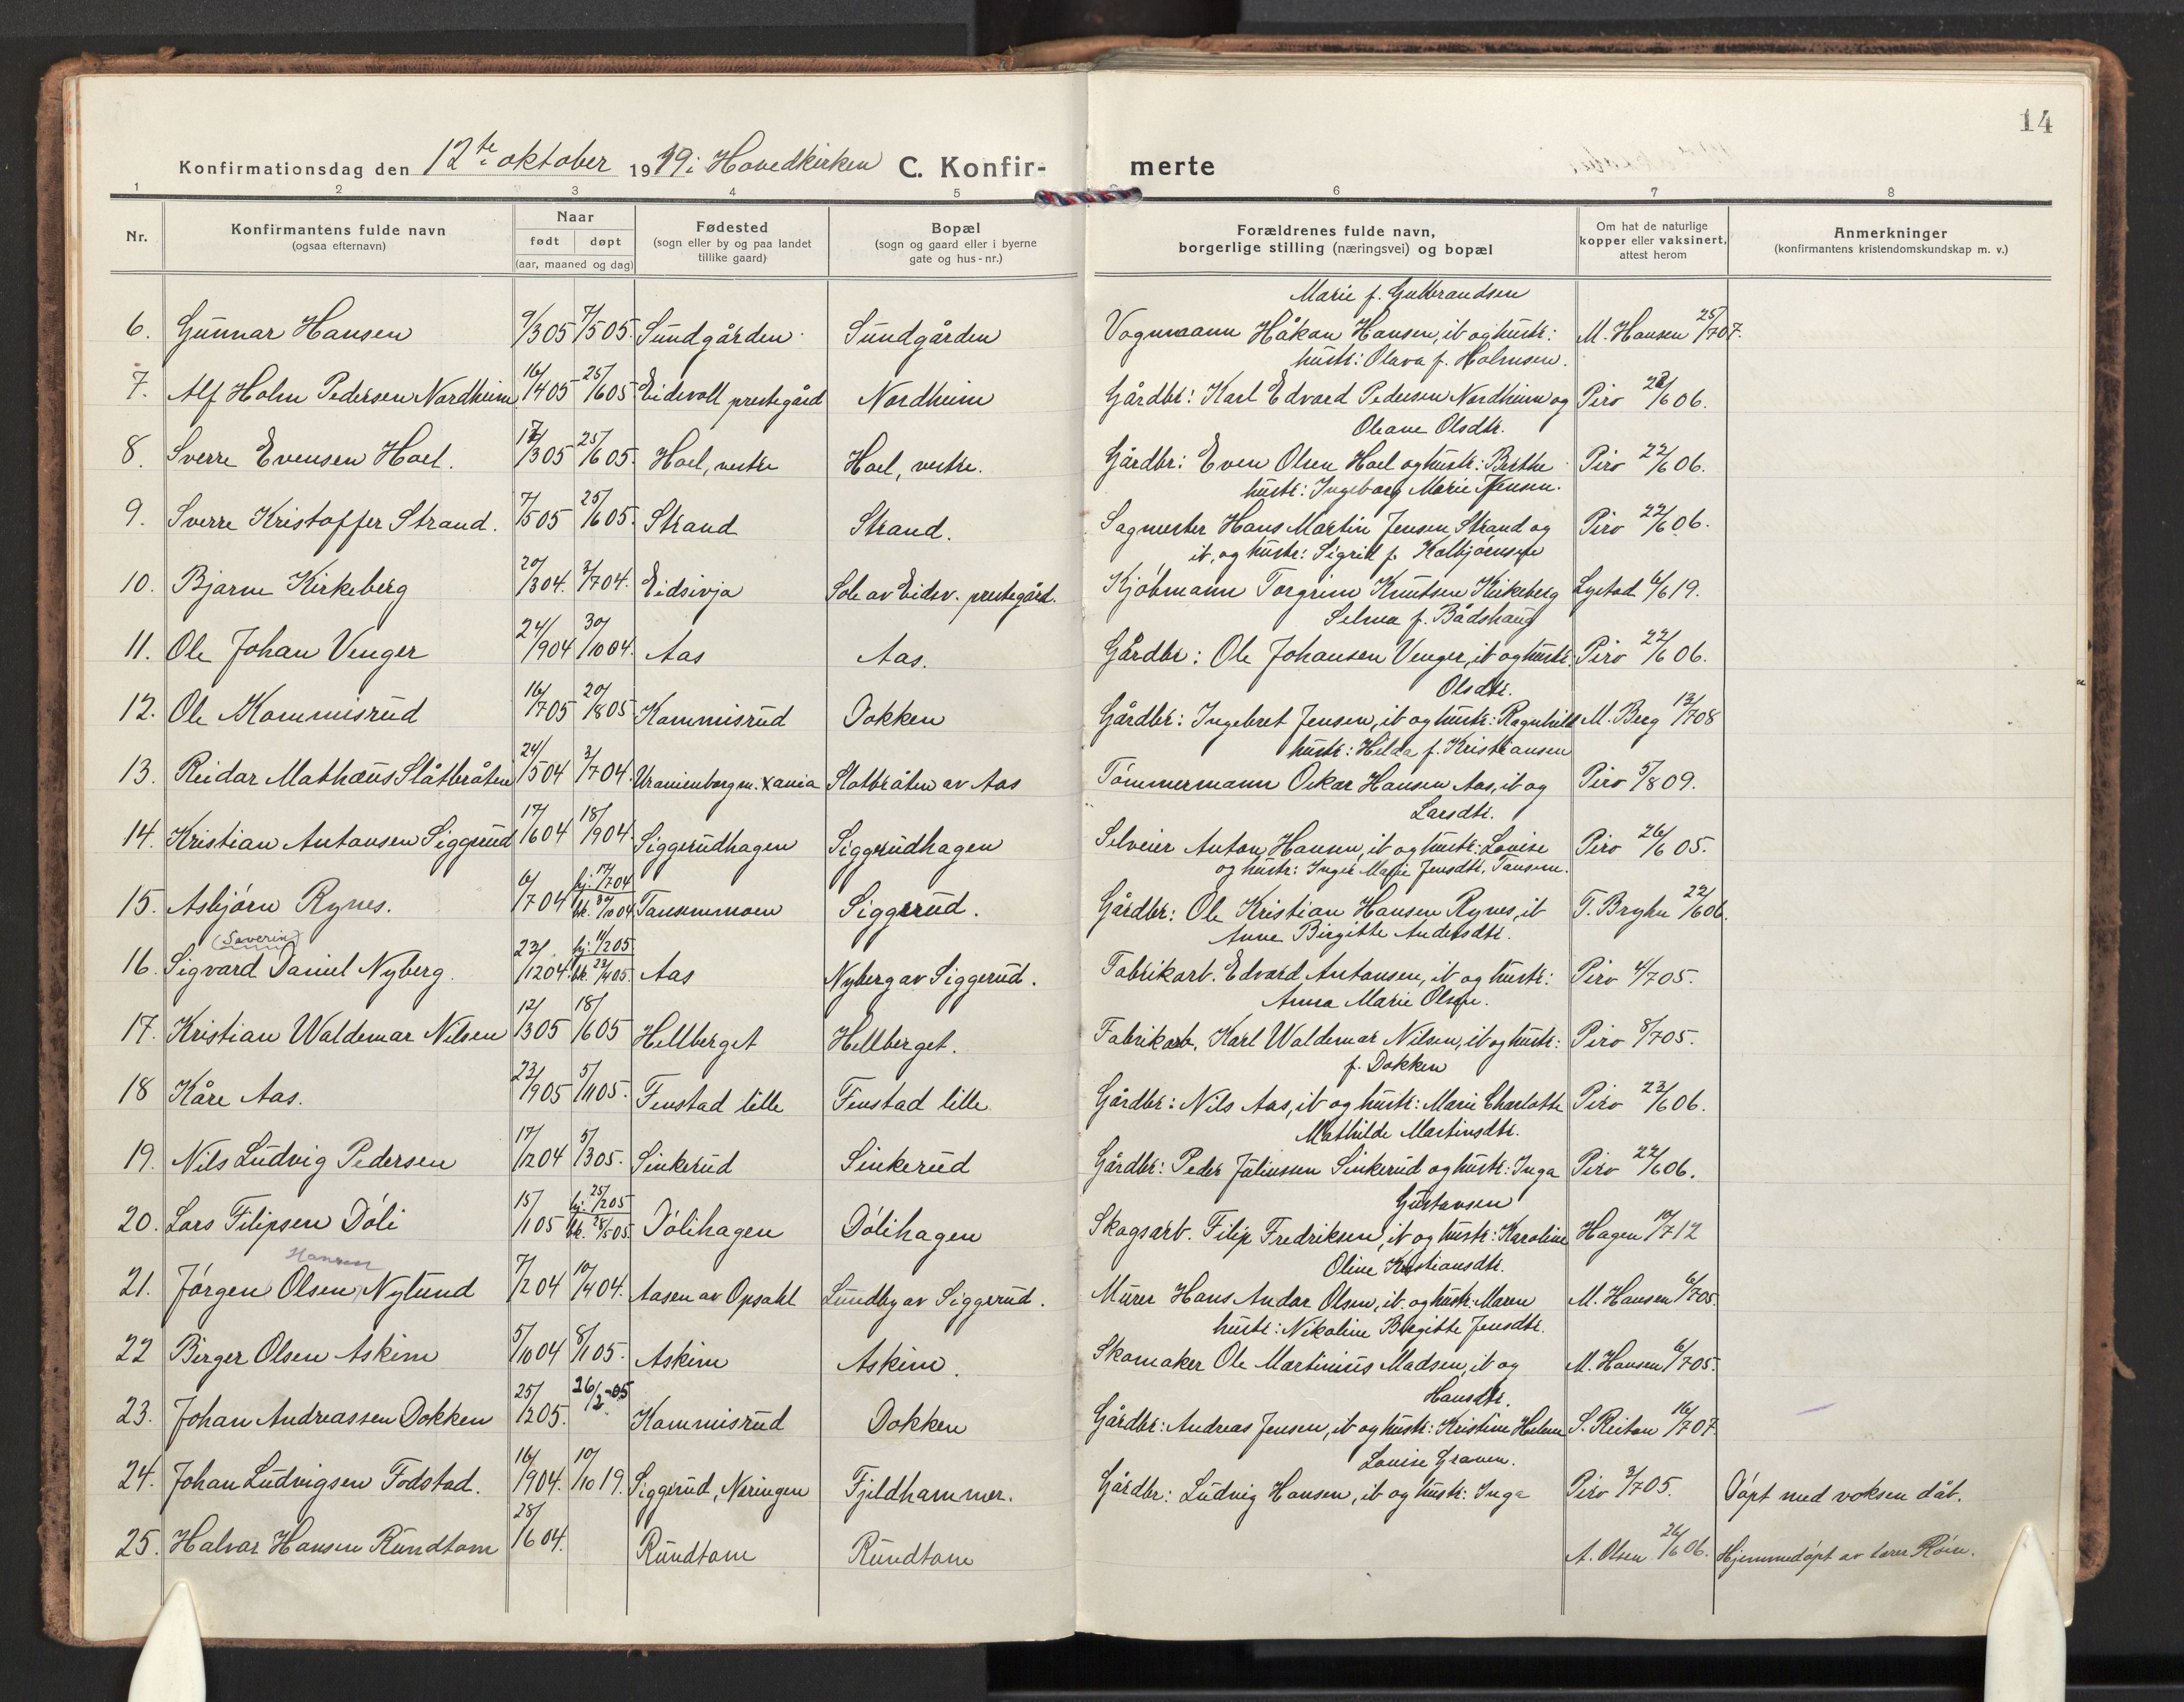 14
Konfirmationsdag den 12te oktober 1919 i Hovedkirken C. Konfir- merte
1 2 3 4 5 6 7 8
Nr. Konfirmantens fulde navn (ogsaa efternavn) Naar født døpt (aar, maaned og dag) Fødested (sogn eller by og paa landet tillike gaard) Bopæl (sogn og gaard eller i byerne gate og hus-nr.) Forældrenes fulde navn, borgerlige stilling (næringsvei) og bopæl Om hat de naturlige kopper eller vaksinert, attest herom Anmerkninger (konfirmantens kristendomskundskap m. v.)
Marie f. Gulbrandsen
6. Gunnar Hansen 9/3 05 7/5 05. Sundgården Sundgården Vognmann Håkon Hansen, ib og hustr: M. Hansen 25/7 07.
hustr: Olava f. Holmsen.
7. Alf Holm Pedersen Nordheim 16/4 05 25/6 05 Eidsvoll prestegård Nordheim Gårdbr: Karl Edvard Pedersen Nordheim og Piro 22/6 06.
Oleane Olsdtr.
8. Sverre Evensen Hoel. 17/3 05 25/6 05. Hoel, vestre Hoel, vestre. Gårdbr: Even Olsen Hoel og hustr: Berthe Piro 22/6 06.
hustr: Ingeborg Marie Jensen.
9. Sverre Kristoffer Strand. 7/5 05 25/6 05. Strand Strand. Sagmester Hans Martin Jensen Strand og Piro 22/6 06.
ib, og hustr: Sigrid f. Kolbjörnsen
10. Bjarne Kirkeberg 20/3 04. 3/7 04. Eidsivja Sole av Eidsv. prestegård. Kjöbmann Torgrim Knutsen Kirkeberg Lystad 6/6 19.
Selma f. Bådshaug
11. Ole Johan Venger 24/9 04 30/10 04. Aas Aas. Gårdbr: Ole Johansen Venger, ib og hustr. Piro 22/6 06.
Olsdtr.
12. Ole Kommisrud 16/7 05 20/8 05 Kommisrud Dokken Gårdbr: Ingebret Jensen, ib og hustr: Ragnhild M. Berg 13/7 08
hustr: Hilda f. Kristiansen
13. Reidar Mathæus Slåtbråten 24/5 04 3/7 04. Uranienborg m. Xania Slåtbråten av Aas Tömmermann Oskar Hansen Aas, ib og Piro 5/8 09.
Larsdtr.
14. Kristian Antonsen Siggerud 17/6 04 18/9 04. Siggerudhagen Siggerudhagen Selveier Anton Hansen, ib og hustr: Lovise Piro 26/6 05.
og hustr: Inger Marie Jensdtr. Tansem.
15. Asbjörn Rynes. 6/7 04 hj: 17/7 04 bk. 30/10 04 Tansemmoen Siggerud. Gårdbr: Ole Kristian Hansen Rynes, ib T. Bryhn 22/6 06.
(Severin) Anne Birgitte Andersdtr.
16. Sigvard Daniel Nyberg. 23/12 04 hj: 11/2 05 bk. 23/4 05. Aas Nyberg av Siggerud. Fabrikarb. Edvard Antonsen, ib og hustr: Piro 4/7 05.
Anna Marie Olsen.
17. Kristian Waldemar Nilsen 12/3 05 18/6 05 Hellberget Hellberget. Fabrikarb. Karl Waldemar Nilsen, ib og hustr: Piro 8/7 05.
f. Dokken
18 Kåre Aas. 23/9 05 5/11 05. Finstad lille Finstad lille. Gårdbr: Nils Aas, ib og hustr: Marie Charlotte Piro 23/6 06.
Mathilde Martinsdtr.
19. Nils Ludvig Pedersen 17/12 04 5/3 05. Sinkerud Sinkerud Gårdbr: Peder Juliussen Sinkerud og hustr: Inga Piro 22/6 06.
Gustavsen
20. Lars Filipsen Döli 15/1 05 hj: 25/2 05 bk. 28/5 05 Dölihagen Dölihagen Skogsarb. Filip Fredriksen, ib og hustr: Karoline Hagen 10/7 12
Hansen Oline Kristiansdtr.
21. Jörgen Olsen Nylund 7/2 04 10/4 04. Aasen av Opsahl Lundby av Siggerud. Murer Hans Andar Olsen, ib. og hustr: Maren M. Hansen 6/7 05.
hustr: Nikoline Birgitte Jensdtr.
22 Birger Olsen Askim 5/10 04 8/1 05. Askim Askim. Skomaker Ole Martinius Madsen, ib og M. Hansen 6/7 05.
Hansdtr.
23. Johan Andreassen Dokken 25/1 05. 26/2-05 Kommisrud Dokken Gårdbr: Andreas Jensen, ib og hustr: Kristine Helene S. Reitan 16/7 07.
Louise Graven.
24. Johan Ludvigsen Fodstad. 16/9 04. 10/10 19. Siggerud, Neringen Fjeldhammer. Gårdbr: Ludvig Hansen, ib og hustr: Inga Piro 3/7 05. Döpt med voksen dåb.
25. Halvar Hansen Rundtom 28/6 04. Rundtom Rundtom A. Olsen 26/6 06. Hjemmedöpt av lærer Röise.